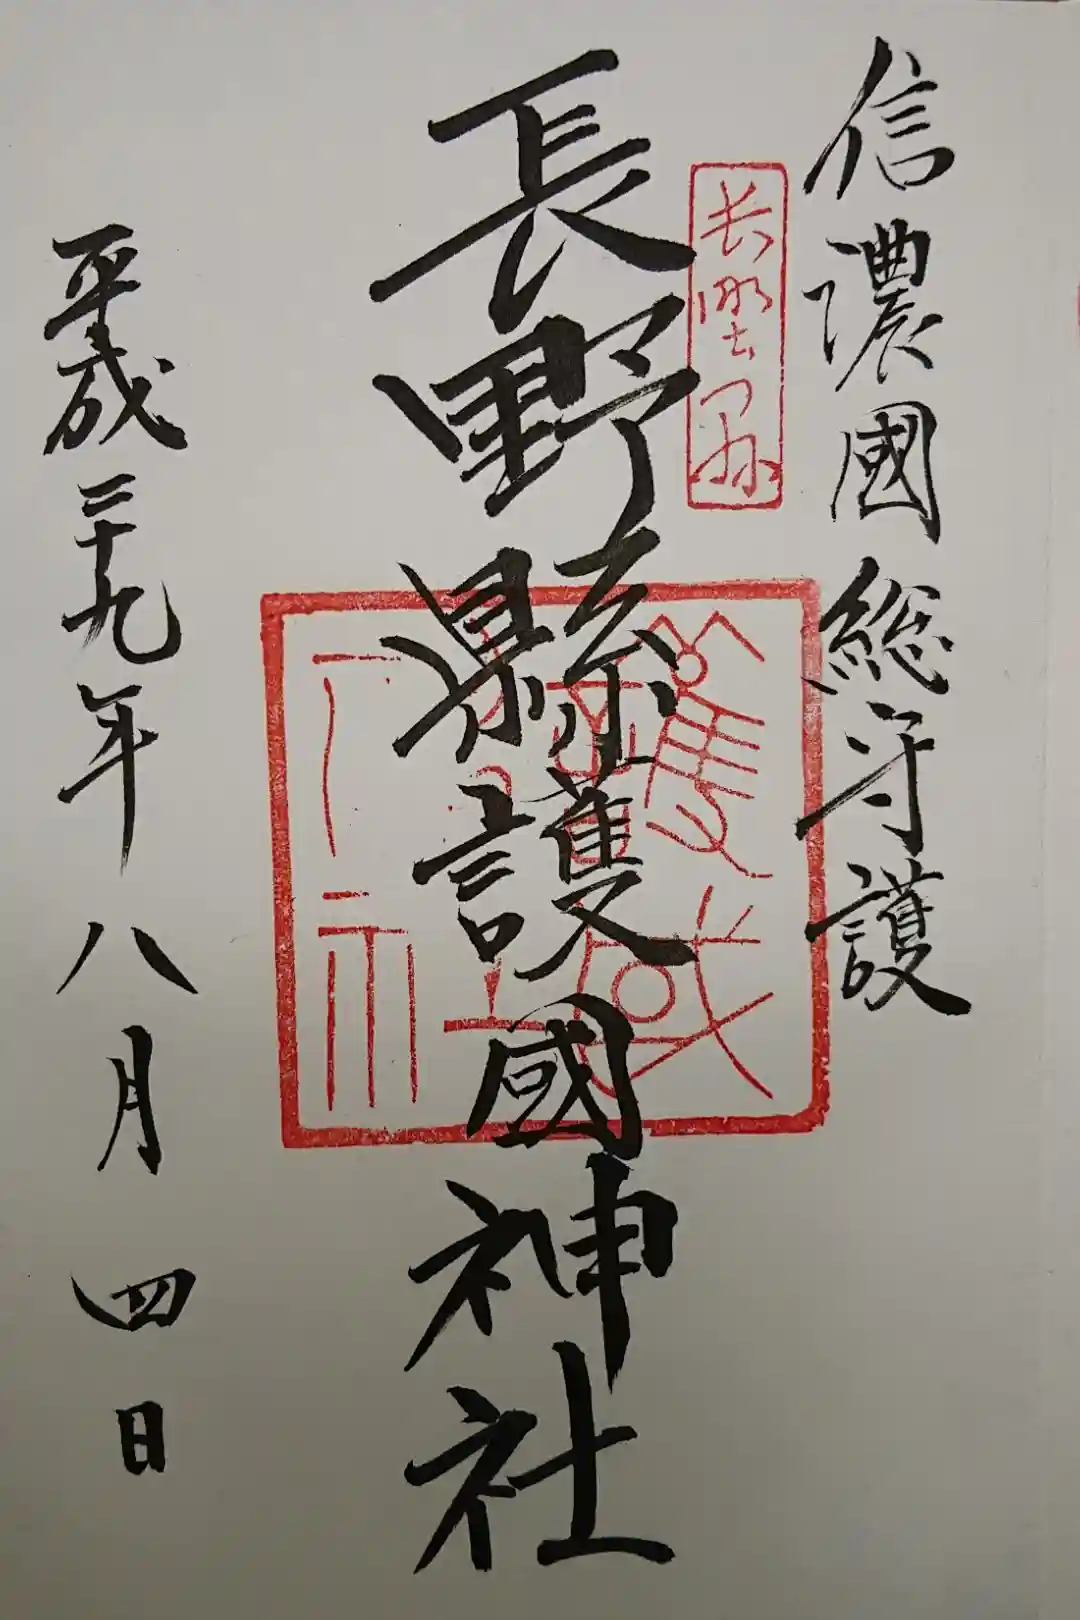 信濃國総守護
長野県
長野縣護國神社
平成二十九年八月四日